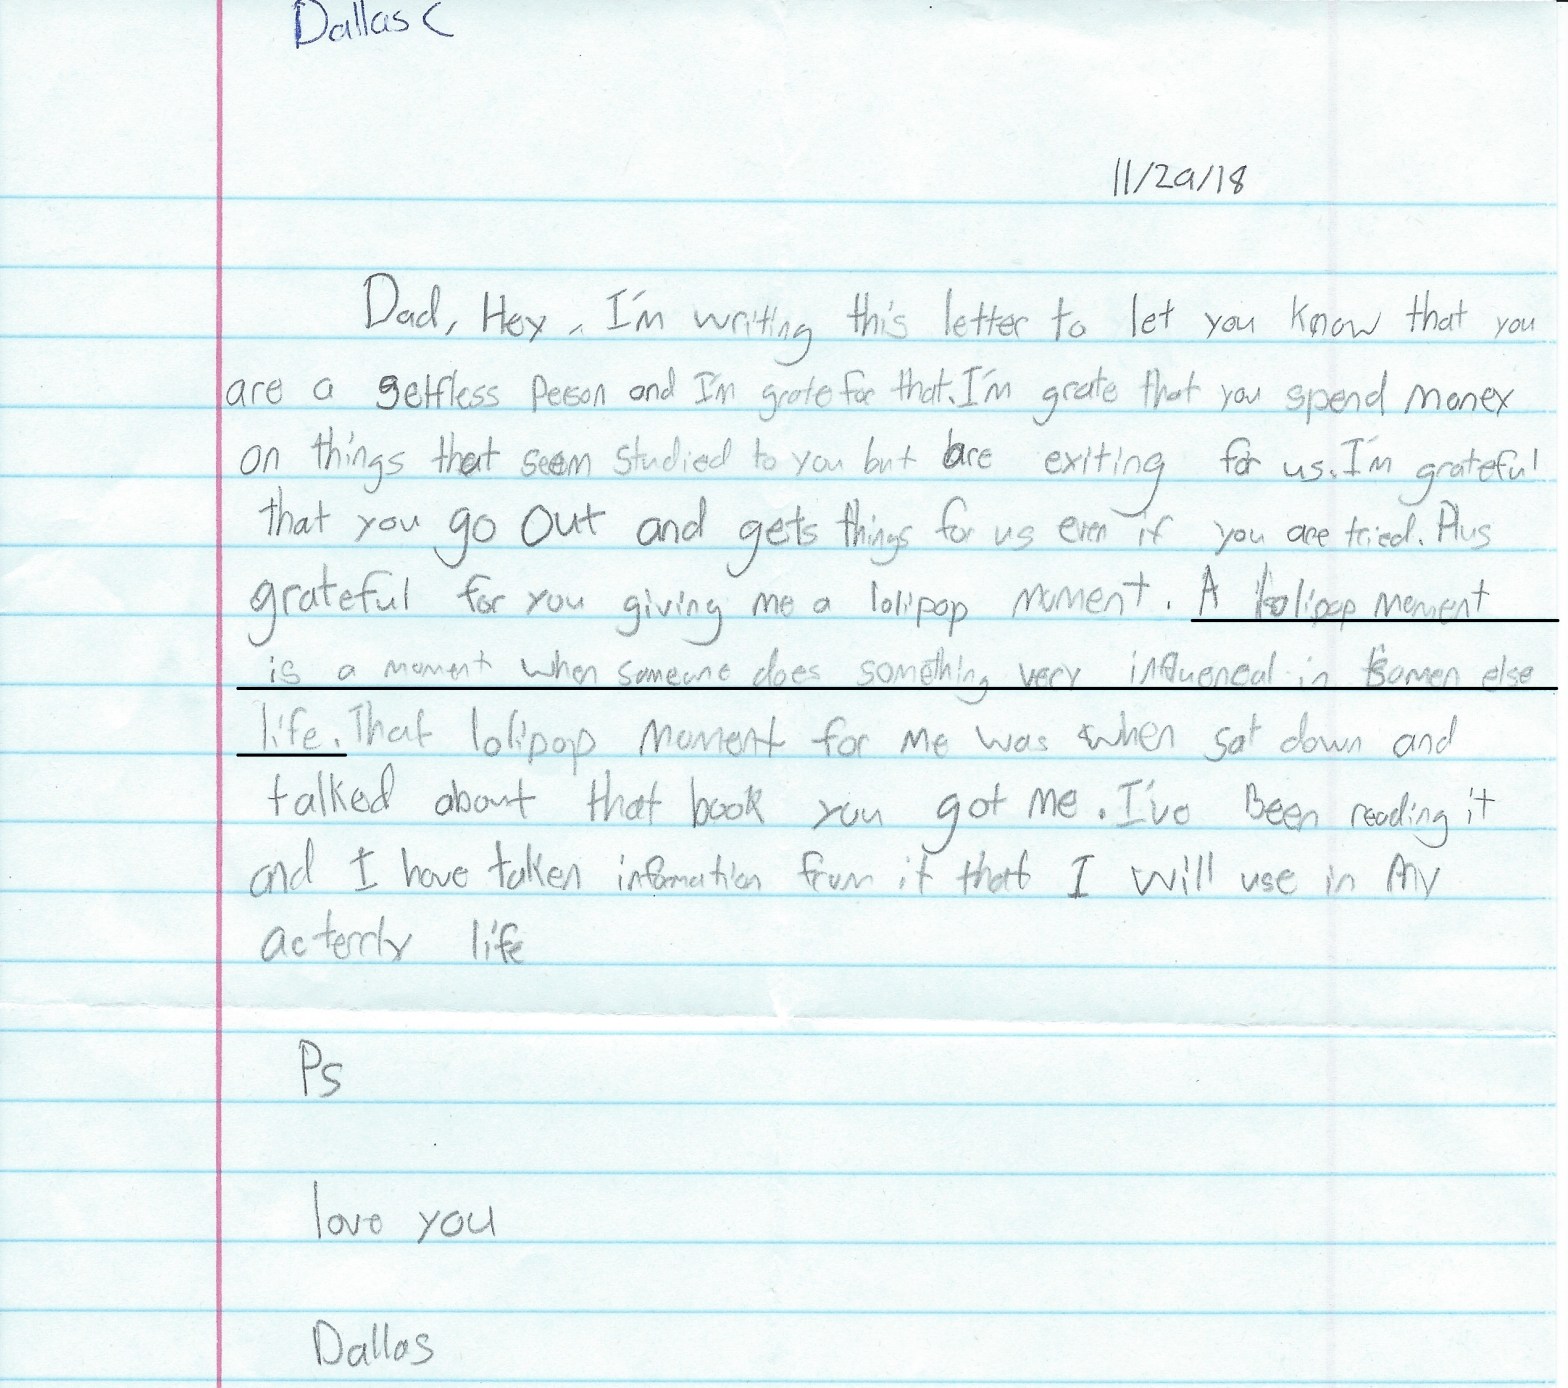 Dallas C
11/29/18
Dad, Hey, I'm writing this letter to let you know that you
are a selfless person and I'm grate for that. I'm grate that you spend money
on things that seem studied to you but are exiting for us. I'm grateful
that you go out and gets things for us even if you are tried. Plus
grateful for you giving me a lolipop moment. A lolipop moment
is a moment when someone does something very influeneal in somen else
life. That lolipop moment for me was when sat down and
talked about that book you got me. I've Been reading it
and I have taken infomation from it that I will use in My
acterrly life
Ps
love you
Dallas